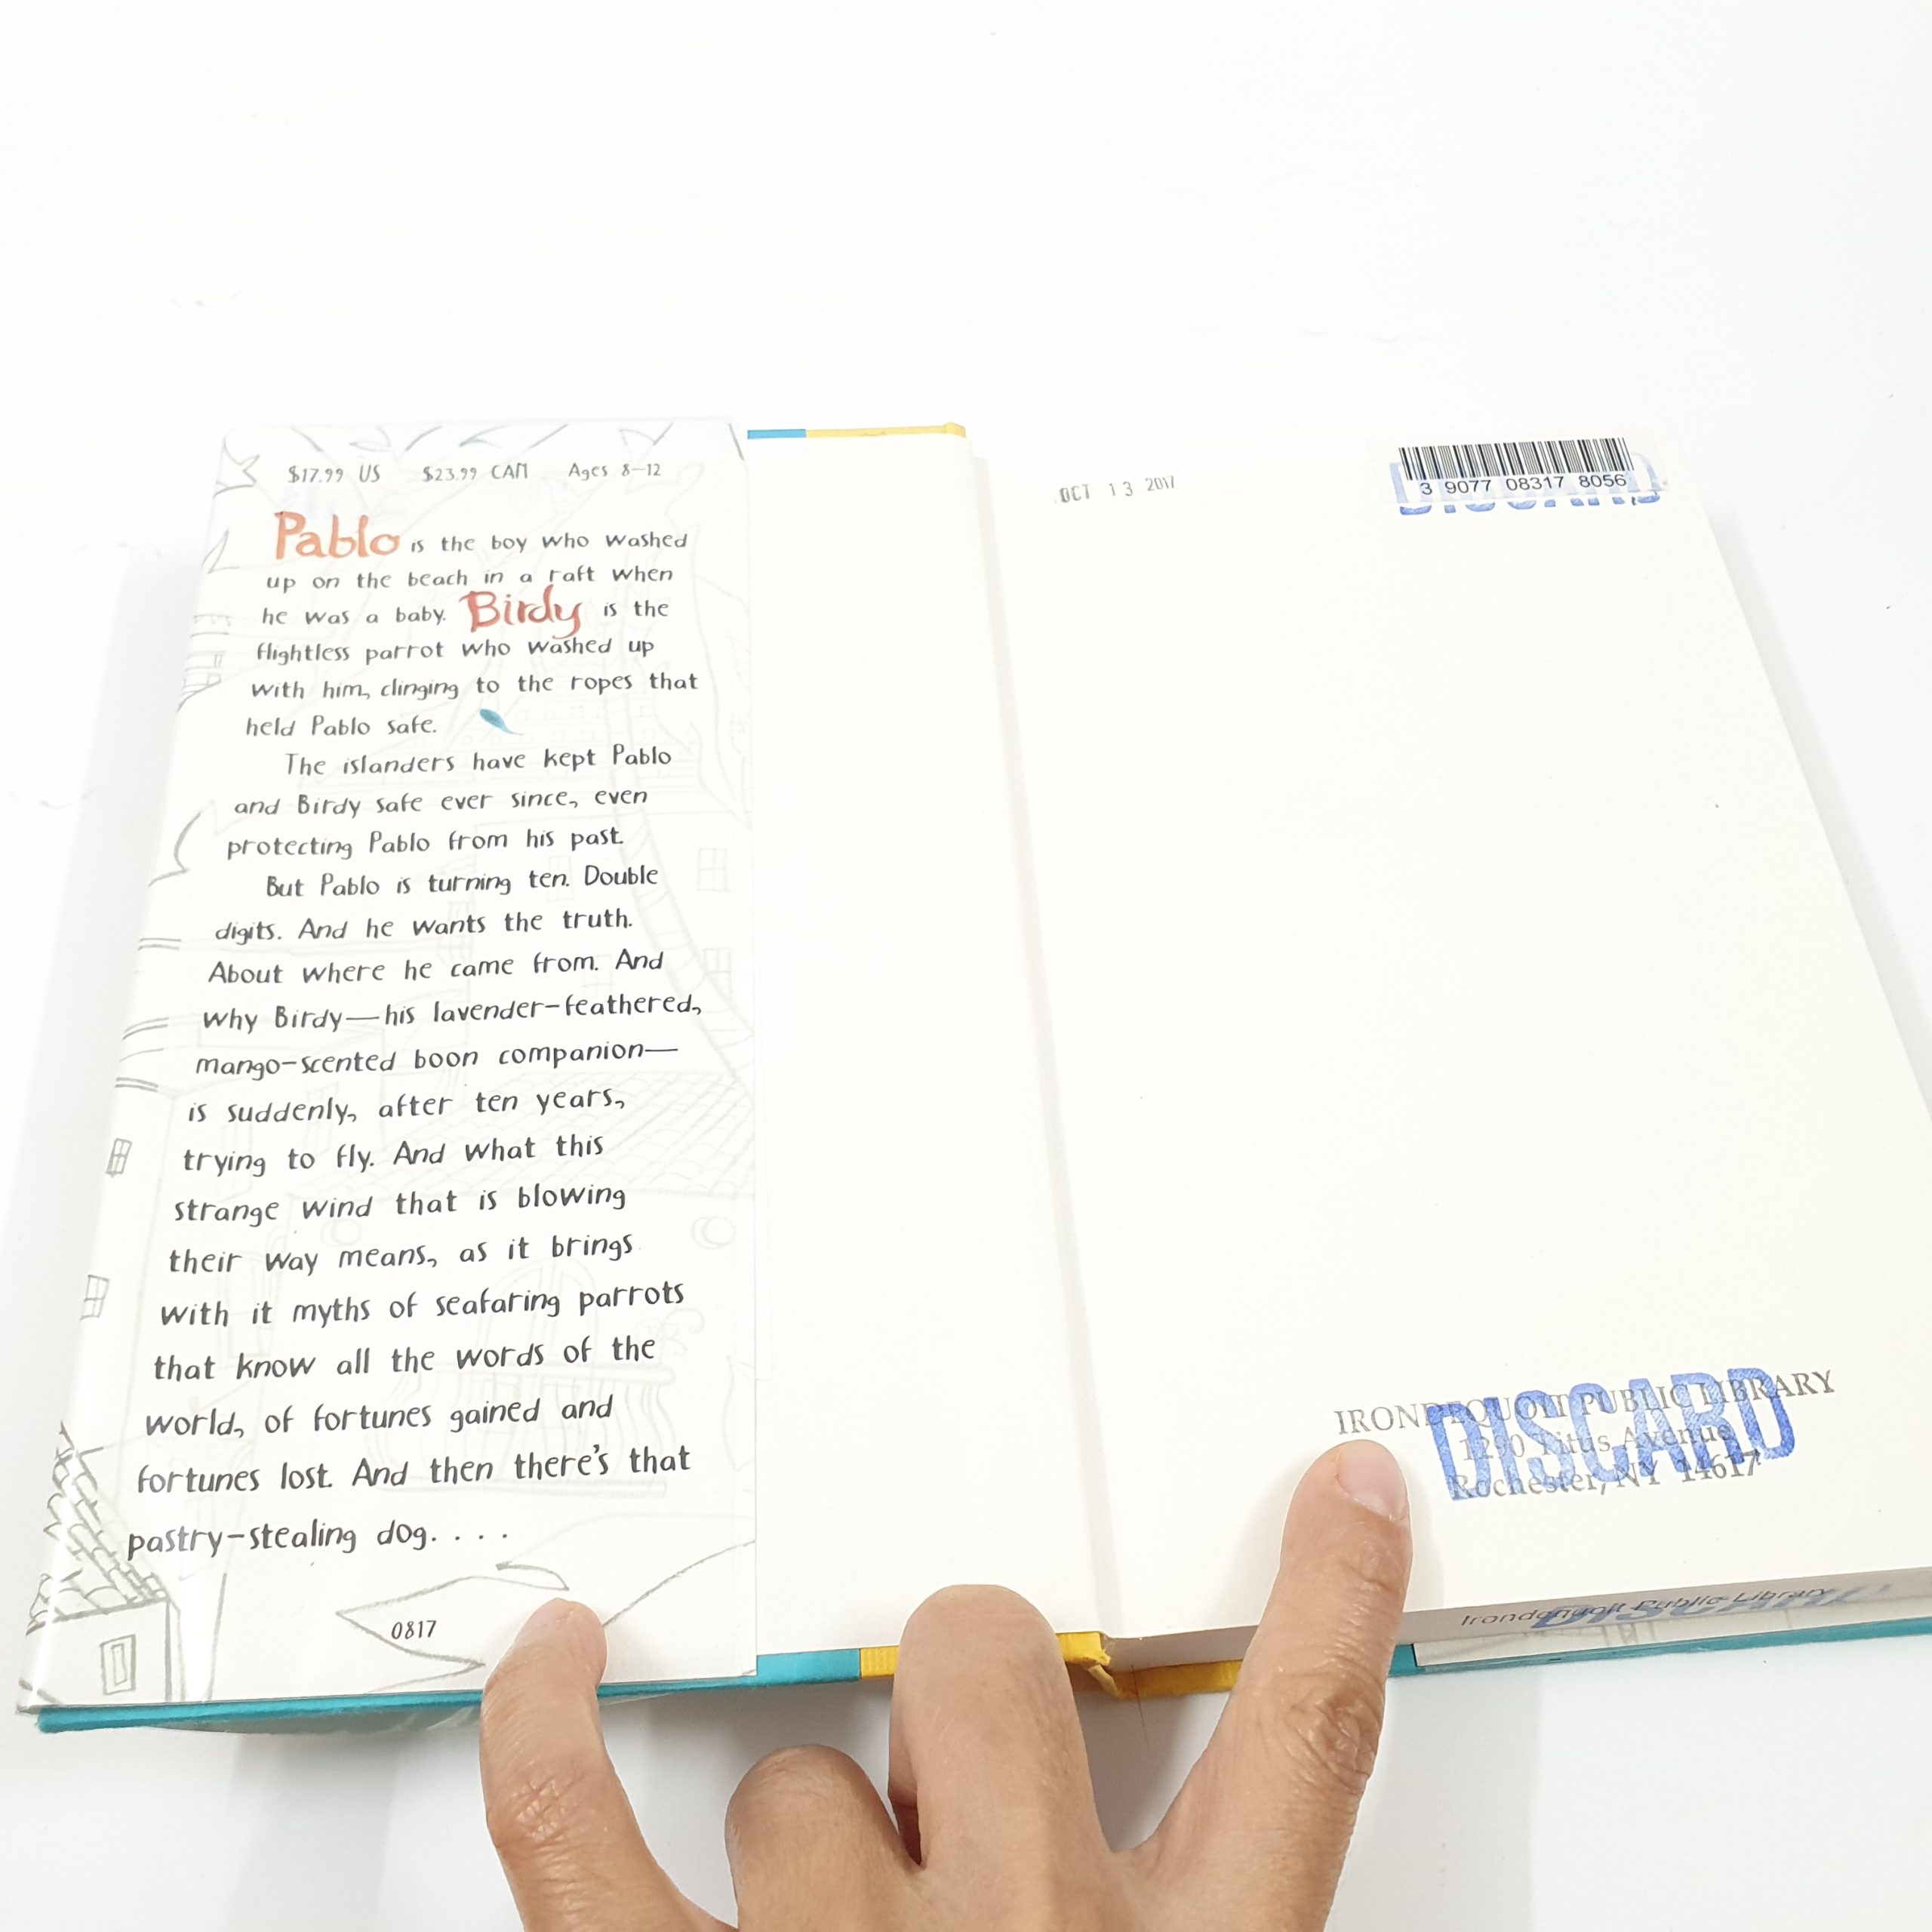 $17.99 US $23.99 CAN Ages 8–12
Pablo is the boy who washed
up on the beach in a raft when
he was a baby. Birdy is the
flightless parrot who washed up
with him, clinging to the ropes that
held Pablo safe.
The islanders have kept Pablo
and Birdy safe ever since, even
protecting Pablo from his past.
But Pablo is turning ten. Double
digits. And he wants the truth.
About where he came from. And
why Birdy—his lavender-feathered,
mango-scented boon companion—
is suddenly, after ten years,
trying to fly. And what this
strange wind that is blowing
their way means, as it brings
with it myths of seafaring parrots
that know all the words of the
world, of fortunes gained and
fortunes lost. And then there's that
pastry-stealing dog. . . .
0817
OCT 13 2017
3 9077 08317 8056
DISCARD
IRONDEQUOIT PUBLIC LIBRARY
1290 Titus Avenue
Rochester, NY 14617
DISCARD
Irondequoit Public Library
DISCARD